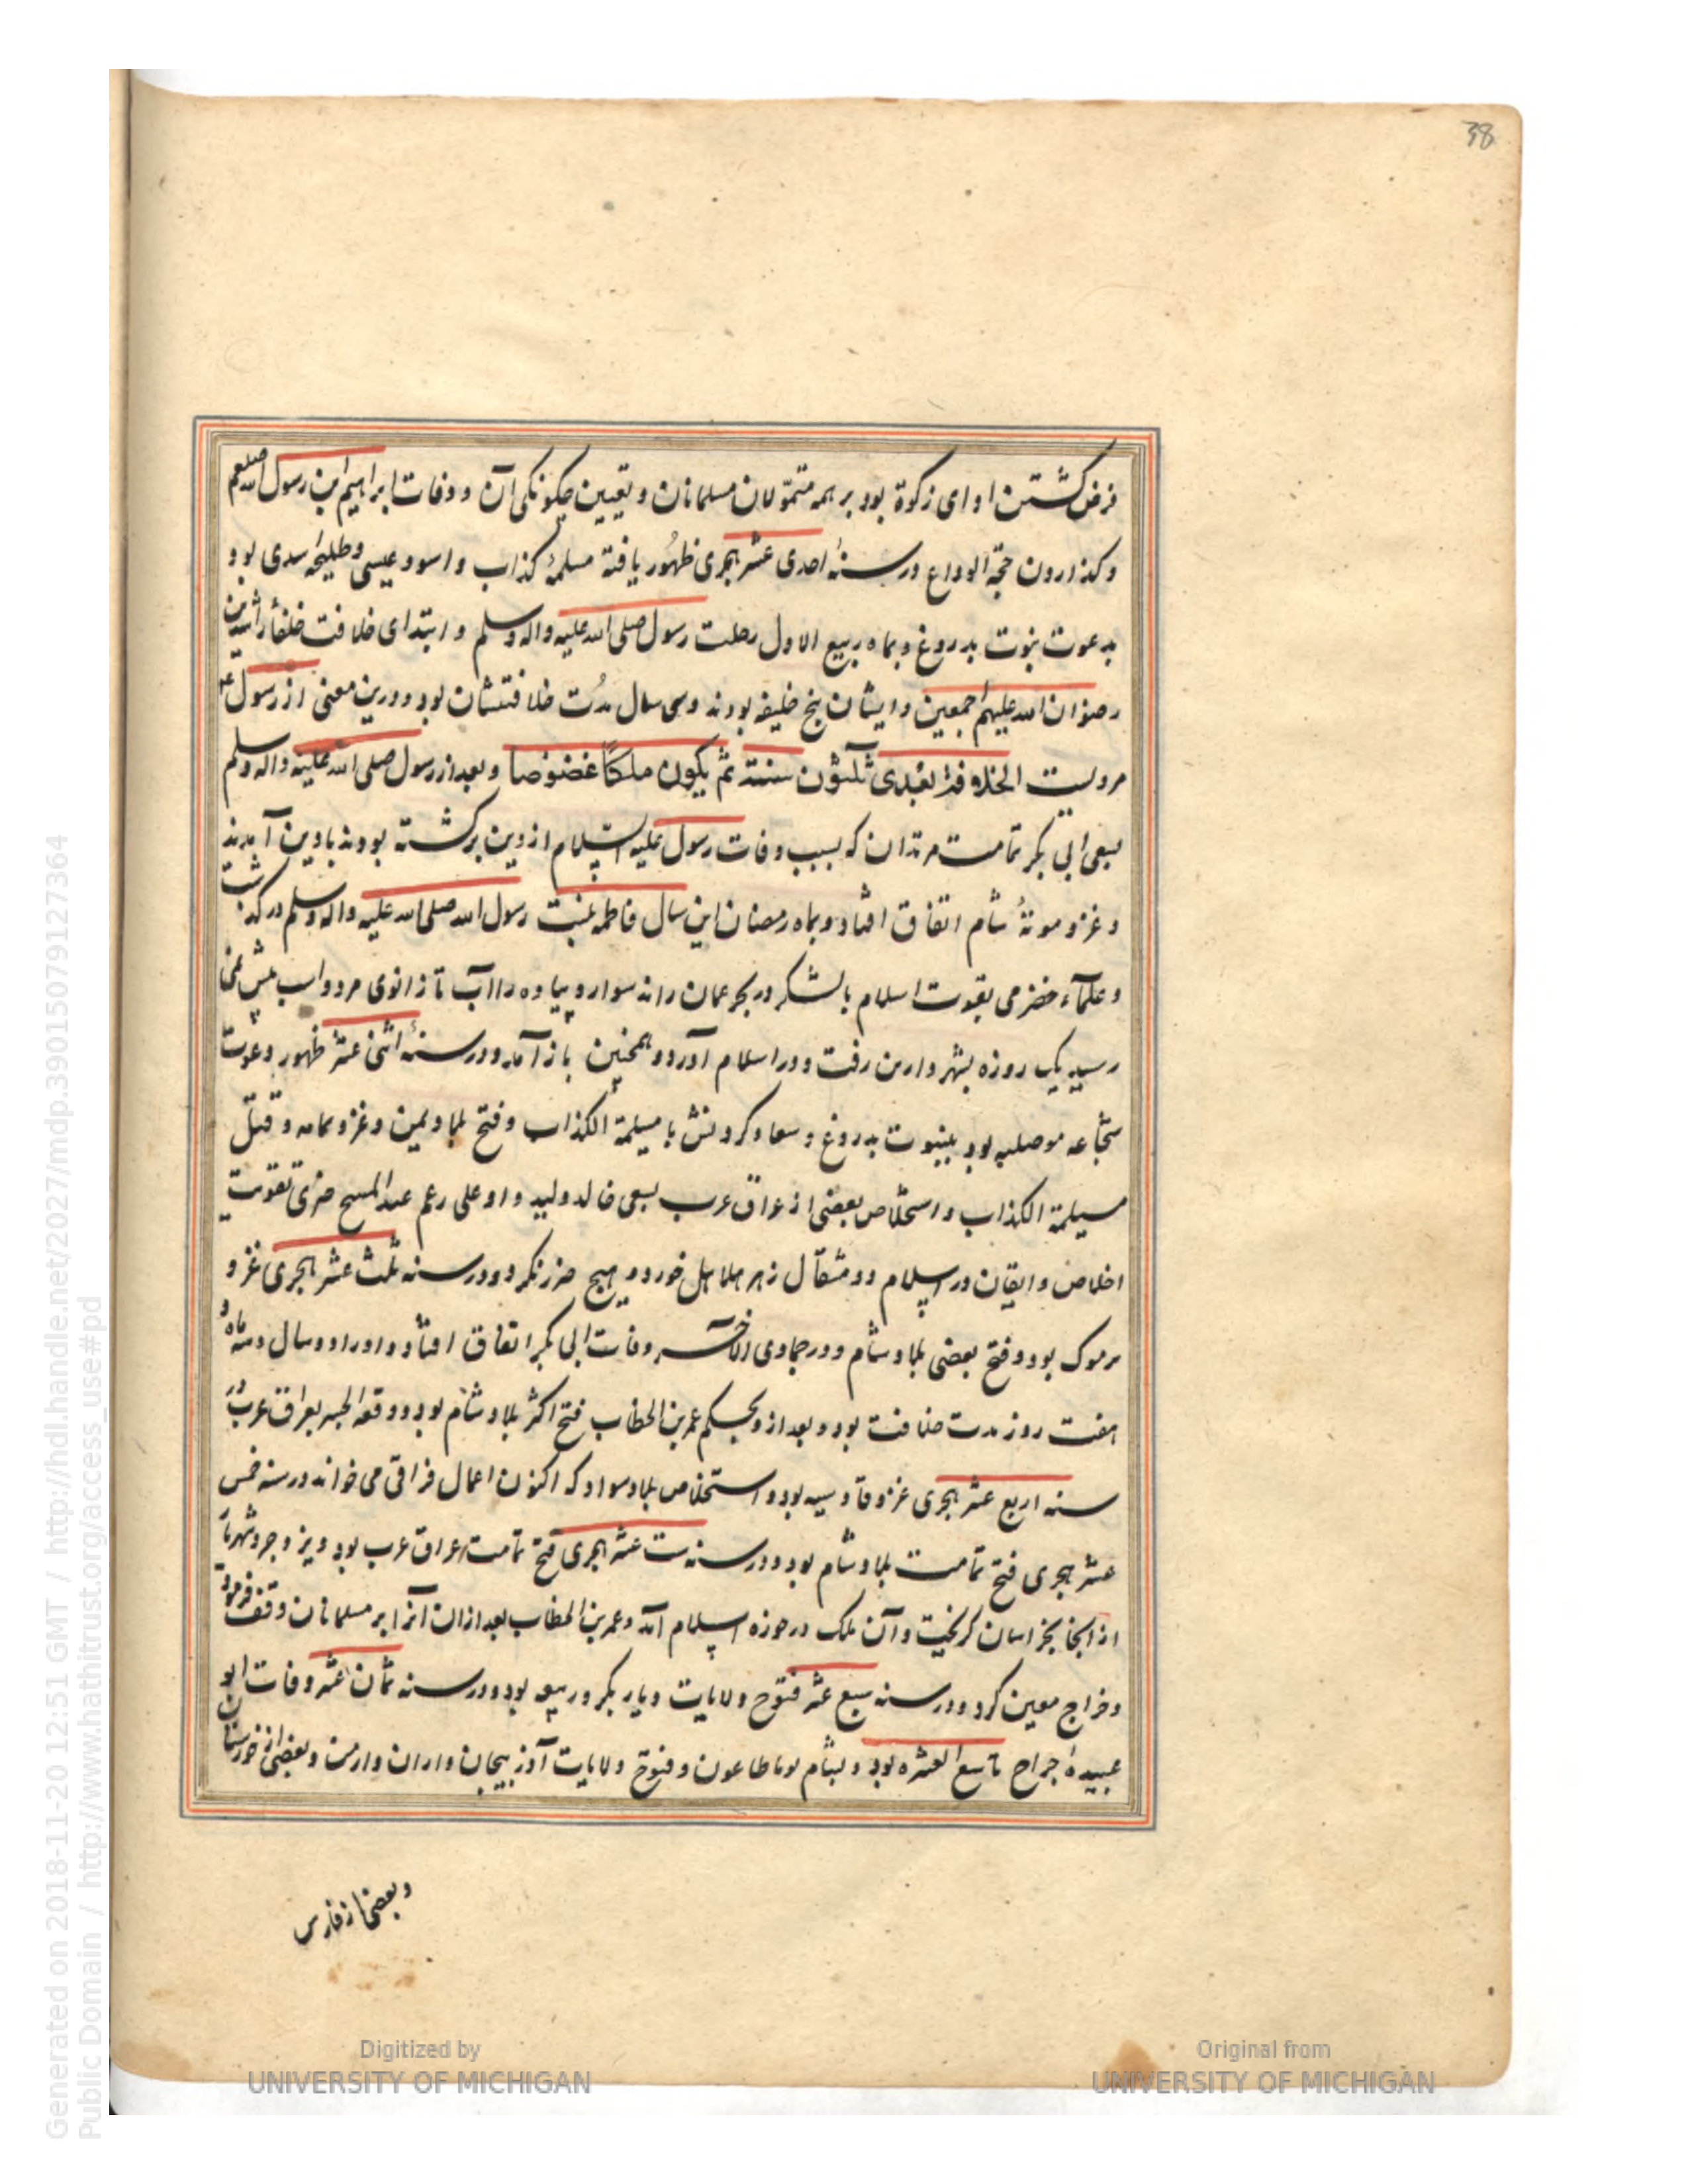 38
فرض گشتن ادای زکوة بود بر همه متمولان مسلمانان و تعیین چکونکی آن و وفات ابراهیم بن رسول الله صلعم
و کذاردن حجة الوداع در سنۀ احدی عشر هجری ظهُور یافتهٔ مسلمۀ کذاب و اسود عیسی و طلیحۀ سدی بود
بدعوت نبوت بدروغ و بماه ربیع الاول رحلت رسول صلی الله علیه واله وسلم و ابتدای خلافت خلفأ راشدین
رضوان الله علیهم اجمعین و ایشان پنج خلیفه بودند و سی سال مدُت خلافتشان بود و درین معنی از رسول ع م
مرویست الخلافة بَعْدی ثلثون سنتة ثم یکون ملکاً عَضُوضا و بعد از رسول صلی الله علیه واله وسلم
بسعی ابی بکر تمامت مرتدان که بسبب وفات رسول علیه السلام از دین برکشته بودند بادین آمدند
و غزو موتۀ شام اتفاق افتاد و بماه رمضان این سال فاطمه بنت رسول الله صلی الله علیه واله وسلم درکذشت
و علآء حضرمی بقوت اسلام بالشکر در بحر عمان راند سوار و پیاده را آب تا زانوی مرد و اسب بیش نمی
رسید یک روزه بشهر دارین رفت و در اسلام آورد و همچنین باز آمد و در سنۀ اثنی عشر ظهور دعوت
سجّاعه موصلیه بود بنبوت بدروغ و سعاد کردنش با مسیلمة الکذاب و فتح بلاد یمن و غزو یمامه و قتل
مسیلمة الکذاب و استخلاص بعضی از عراق عرب بسعی خالد ولید و او علی رغم عبد المسیح حبری تقویت
اخلاص و ایقان در اسلام دو مثقال زهر هلاهل خورد و هیچ ضرر نکرد و در سنه ثلث عشر هجری غزو
یرموک بود و فتح بعضی بلاد شام و در جمادی الآخر وفات ابی بکر اتفاق افتاد و او را دو سال و سه ماه و
هفت روز مدت خلافت بود و بعد از و بحکم عمر بن الخطاب فتح اکثر بلاد شام بود و وقعه الجسر بعراق عرب و در
سنه اربع عشر هجری غزو قادسیه بود و استخلاص بلاد سواد که اکنون اعمال فراتی می خواند در سنه خمس
عشر هجری فتح تمامت بلاد شام بود و در سنه ست عشر هجری فتح تمامت عراق عرب بود و یزدجرد شهریار
از انجا بخراسان کریخت و آن ملک در حوزه اسلام آمد و عمر بن الخطاب بعد ازان آنرا بر مسلمانان وقف فرمود
و خراج معین کرد و در سنه سبع عشر فتوح ولایات دیار بکر و ربیعه بود و در سنه ثمان عشر وفات ابو
عبیدۀ جراح تاسع العشره بود و بشام بوباطاعون و فتوح ولایات آذربیجان و اران و ارمن و بعضی از خوزستان
و بعضی از فارس
Generated on 2018-11-20 12:51 GMT / http://hdl.handle.net/2027/mdp.39015079127364
Public Domain / http://www.hathitrust.org/access_use#pd
Digitized by
UNIVERSITY OF MICHIGAN
Original from
UNIVERSITY OF MICHIGAN